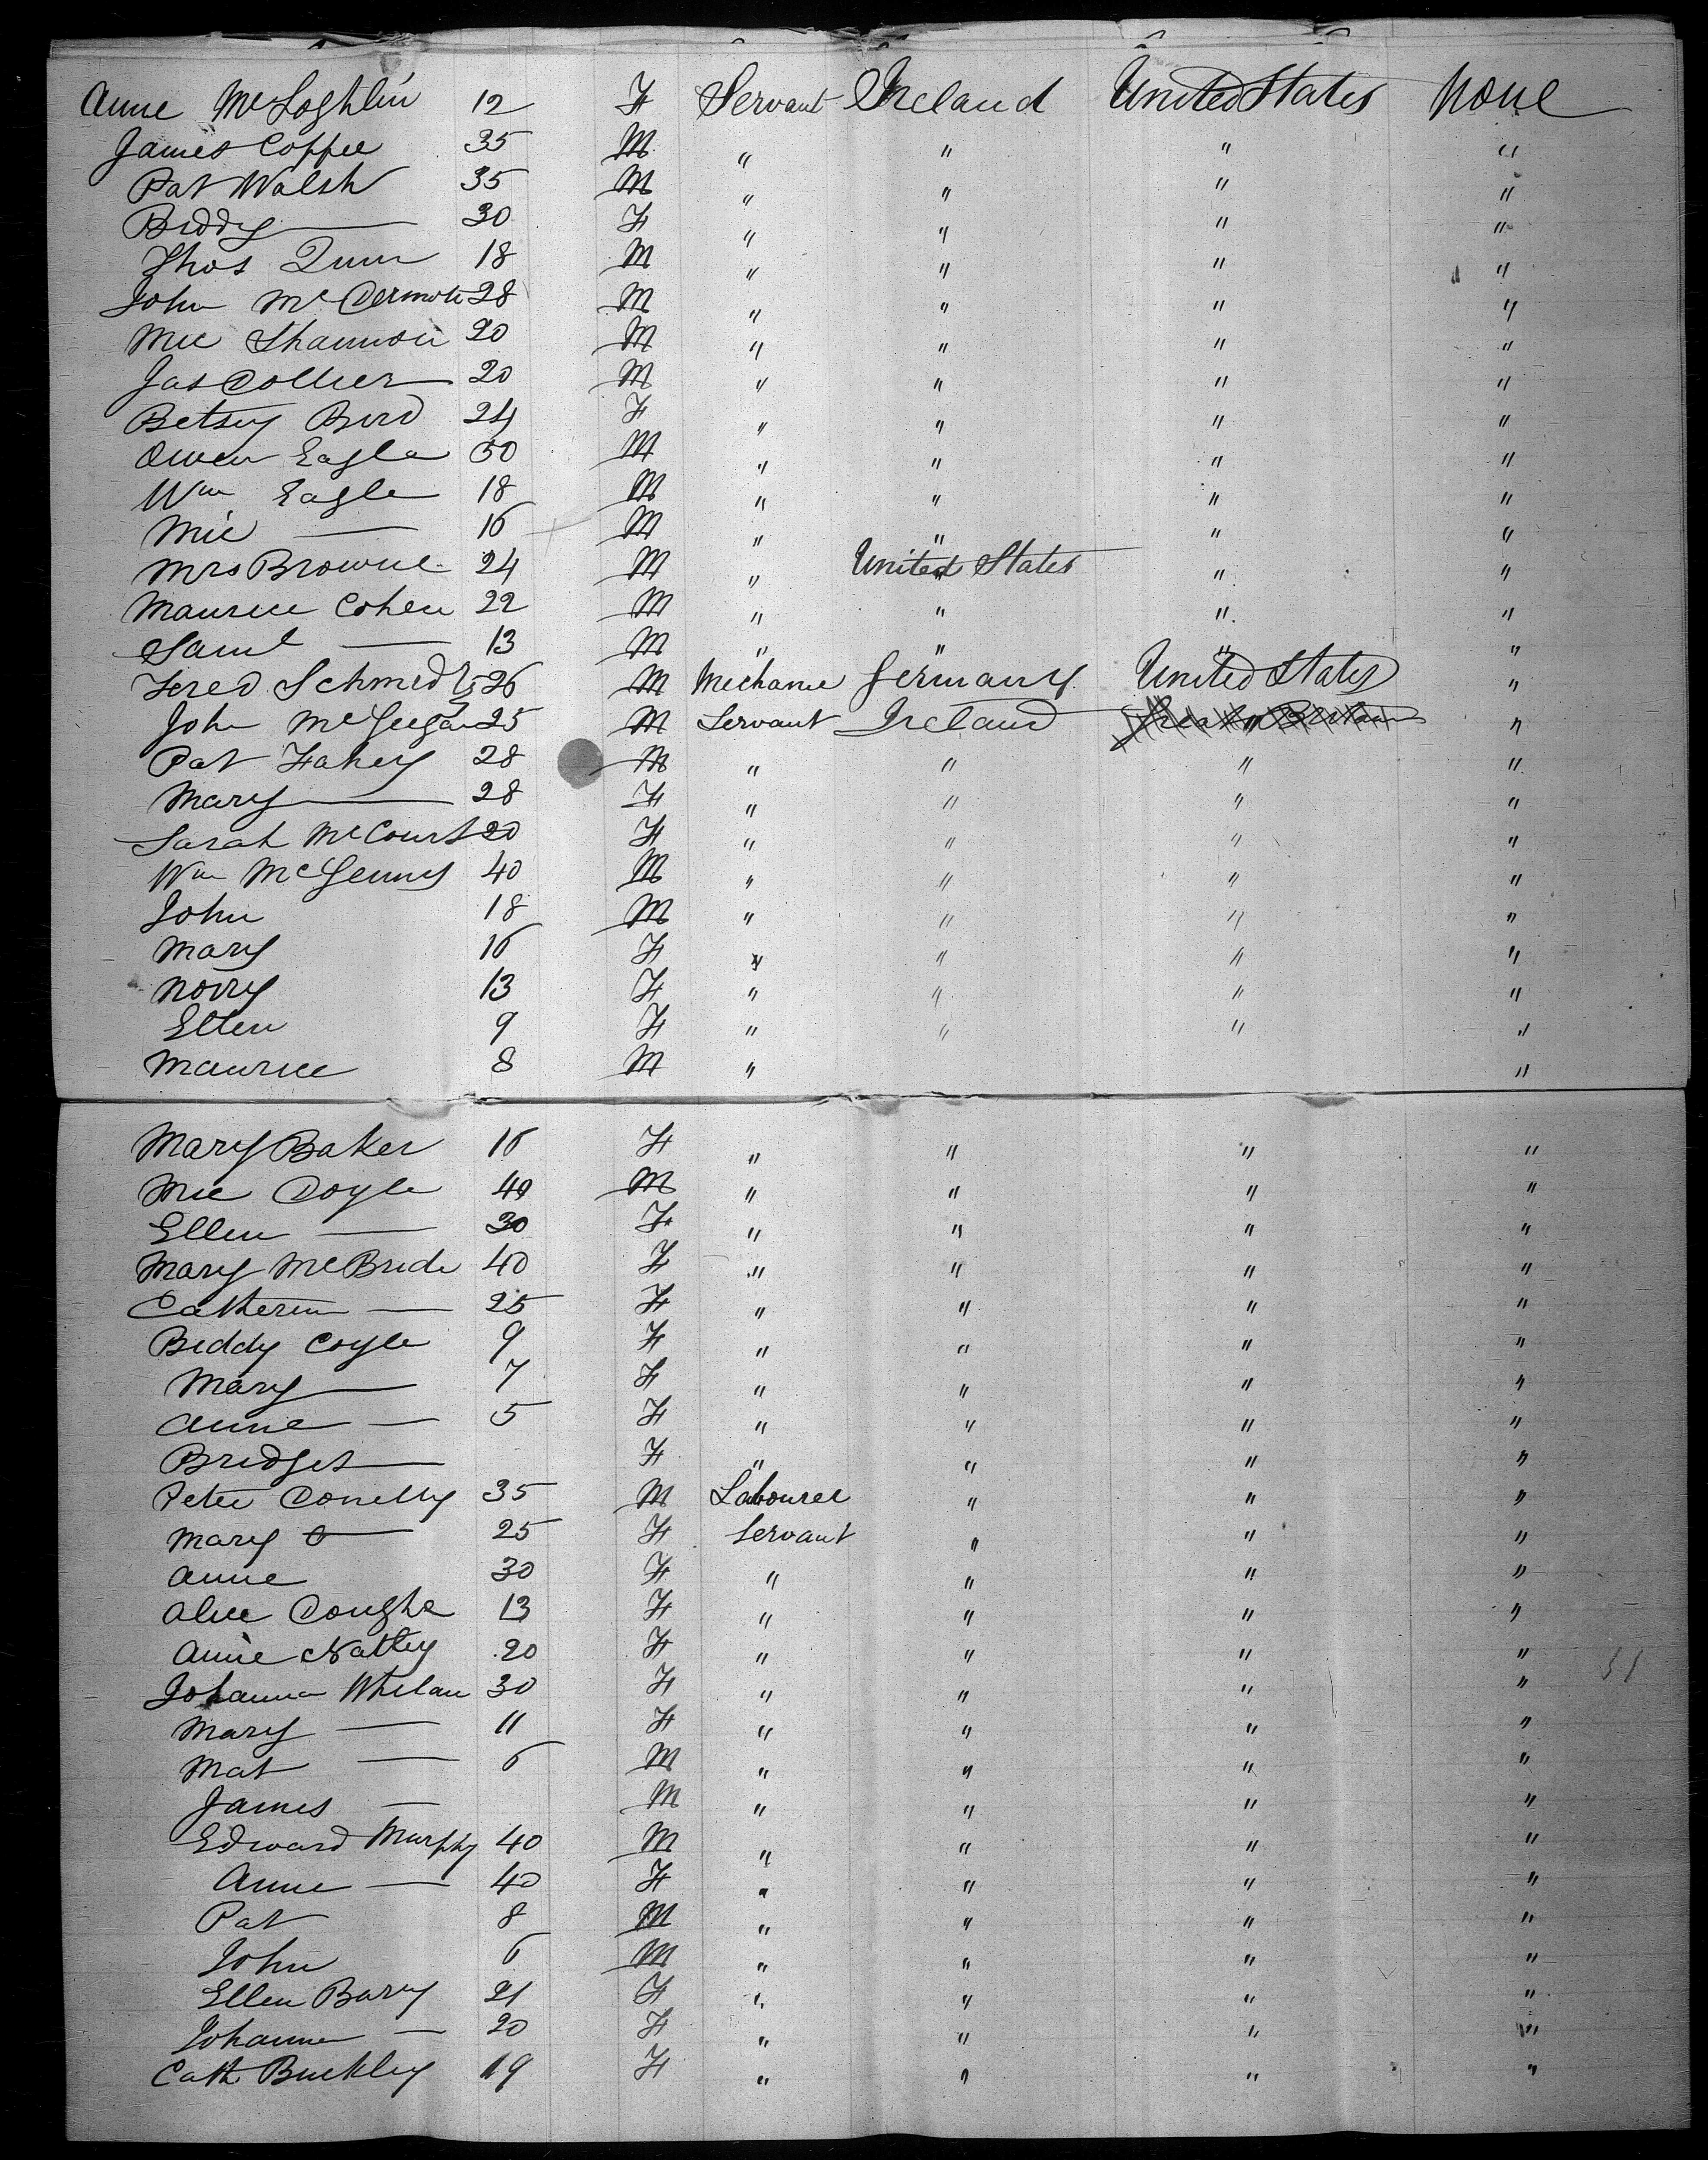 Anne McLoghlin 12 F Servant Ireland United States None
James Coffee 35 M " " " "
Pat Walsh 35 M " " " "
Biddy — 30 F " " " "
Thos Quin 18 M " " " "
John McDermott 28 M " " " "
Mic Shannon 20 M " " " "
Jas Collier 20 M " " " "
Betsey Bird 24 F " " " "
Owen Eagle 50 M " " " "
Wm Eagle 18 M " " " "
Mic — 16 M " " " "
Mrs Browne 24 M " United States " "
Maurice Cohen 22 M " " " "
Saml — 13 M " " " "
Fered Schmidt 26 M Mechanic Germany United States "
John McGeegan 25 M Servant Ireland " "
Pat Fahey 28 M " " " "
Mary — 28 F " " " "
Sarah McCourt 20 F " " " "
Wm McGenny 40 M " " " "
John 18 M " " " "
Mary 16 F " " " "
Norry 13 F " " " "
Ellen 9 F " " " "
Maurice 8 M " "
Mary Baker 16 F " " " "
Mic Doyle 40 M " " " "
Ellen — 30 F " " " "
Mary McBride 40 F " " " "
Catherin — 25 F " " " "
Biddy Coyle 9 F " " " "
Mary — 7 F " " " "
Anne — 5 F " " " "
Bridget — F " " " "
Peter Conelly 35 M Labourer " " "
Mary — 25 F Servant " " "
Anne 30 F " " " "
Alice 13 F " " " "
Anne 20 F " " " "
Johanna Whelan 30 F " " " "
Mary — 11 F " " " "
Mat — 6 M " " " "
James — M " " " "
Edward Murphy 40 M " " " "
Anne — 40 F " " " "
Pat 8 M " " " "
John 6 M " " " "
Ellen Barry 21 F " " " "
Johanna — 20 F " " " "
Cath Buckley 19 F " " " "